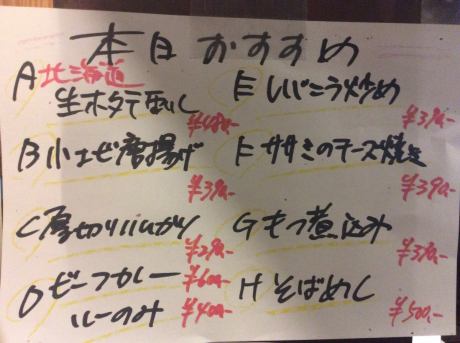 本日おすすめ
A北海道
生ホタテ刺し
¥480-
B小エビ唐揚げ
¥390-
C厚切りいぶがり
¥290-
Dビーフカレー
¥600-
ルーのみ
¥400-
Eレバニラ炒め
¥390-
Fササミのチーズ焼き
¥390-
Gもつ煮込み
¥390-
Hそばめし
¥500-